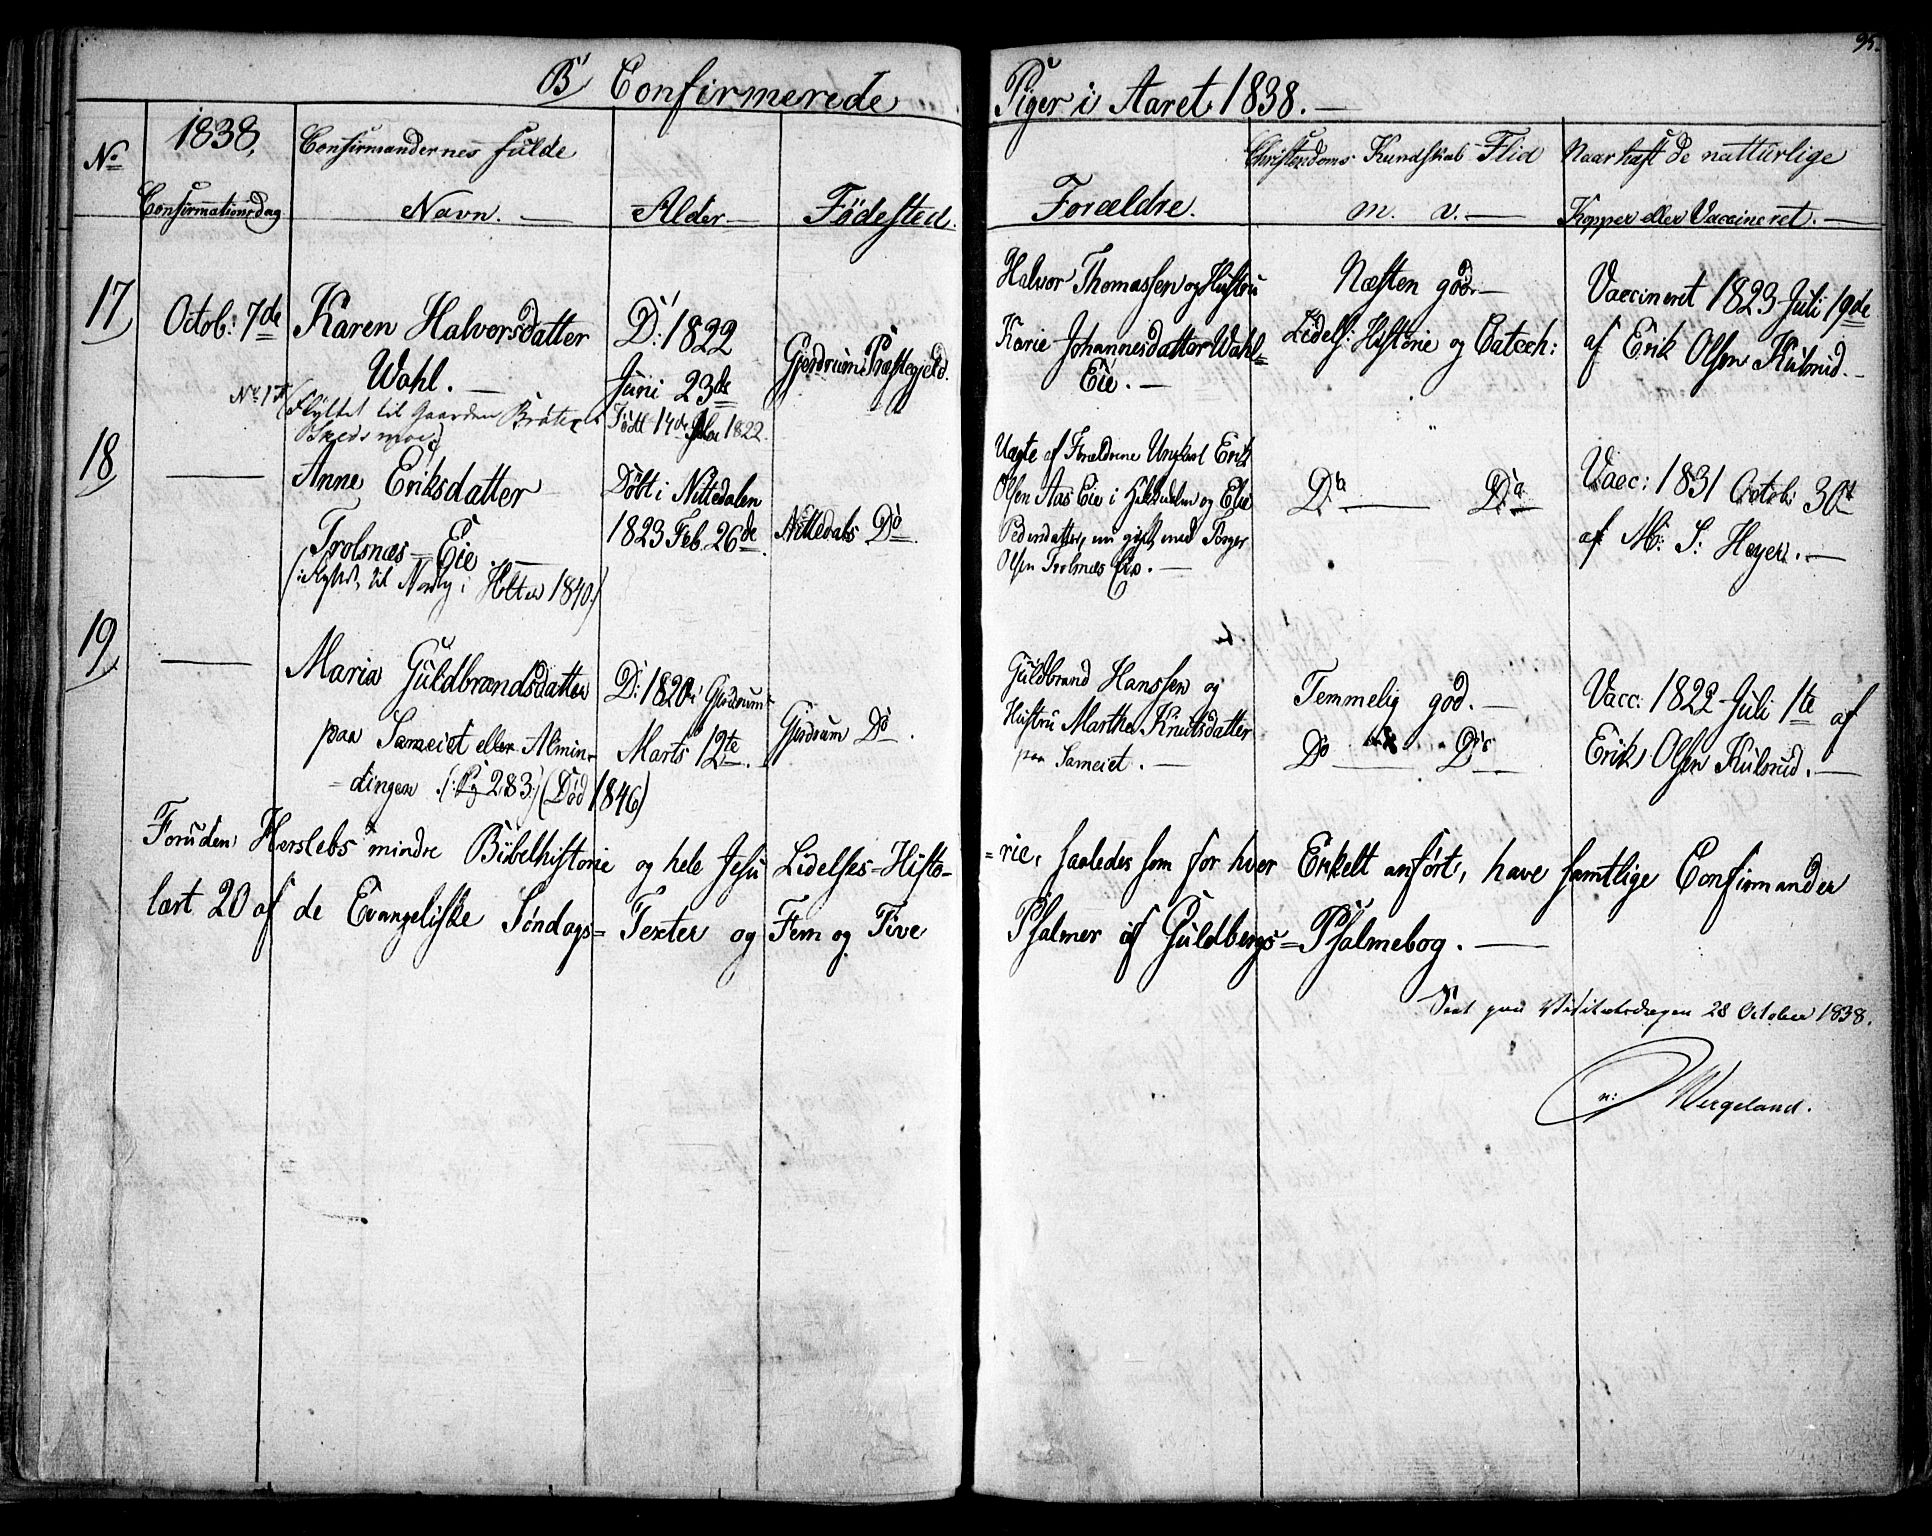 95.
B, Confirmerede Piger i Aaret 1838. —
No
1838,
Confirmationsdag
Confirmandernes fulde
Navn. —
Alder —
Fødested.
Forældre.
Christendoms Kundskab Flid
m. v. —
Naar havt de natturlige
Kopper eller Vaccineret. —
17
Octob: 7de
Karen Halvorsdatter
Wahl. —
No 17
(Flyttet til Gaarden Bråte
Skedsmoe)
D: 1822
Juni 23de
Født 14de 1822.
Gjerdrums Præstegjeld.
Halvor Thomassen og Hustru
Karie Johannesdatter Wahl=
Eie. —
Næsten god —
Lidels: Historie og Catech:
Vaccineret 1823 Juli 19de
af Erik Olsen Kulsrud. —
18
—
Anne Eriksdatter
Trolsnæs=Eie —
(Flyttet til Nordby i Holter 1840)
Døbt i Nittedalen
1823 Feb. 26de.
Nittedals Do
Uægte af Forældrene Ungkarl Erik
Olsen Aas Eie i og Elie
Pedersdatter, nu gift med Torger
Olsen Trolsnæs Eie. —
Do — Do
Vacc: 1831 Octob: 30te
af M: S: Heyer. —
19
—
Maria Guldbrandsdatter
paa Sameiet eller Almin=
=dingen (: Pg 283:) (Død 1846)
D: 1820 i Gjerdrum
Marts 12te. —
Gjerdrum Do.
Guldbrand Hanssen og
Hustru Marthe Knutsdatter
paa Sameiet. —
Temmelig god. —
Do — Do
Vacc: 1822 Juli 1te af
Erik Olsen Kulsrud. —
Foruden Herslebs mindre Bibelhistorie og hele Jesu Lidelses=Histo-
=rie, saaledes som for hver Enkelt anført, have samtlige Confirmander
lært 20 af de Evangeliske Søndags=Texter og Fem og Tive
Psalmer af Guldbergs=Psalmebog. —
Seet paa Visitatsdagen 28 October 1838.
n: Wergeland.